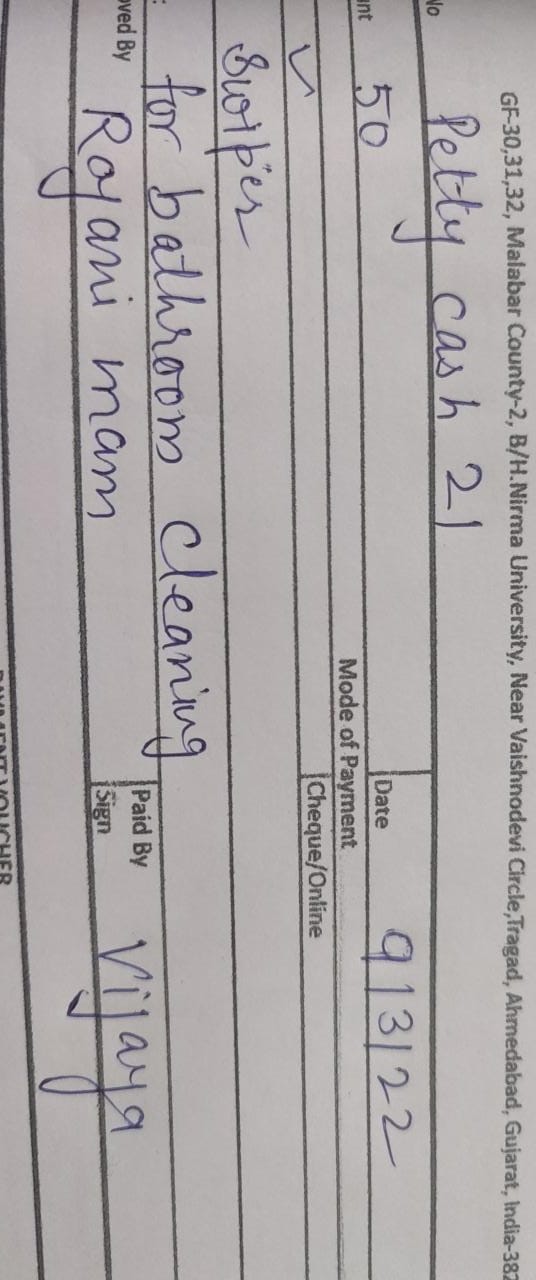 GF-30,31,32, Malabar County-2, B/H.Nirma University, Near Vaishnodevi Circle,Tragad, Ahmedabad, Gujarat, India-382
No Petty cash 21
nt 50 Date 9/3/22
Mode of Payment
✓ Cheque/Online
Swiper
: for bathrooms cleaning
oved By Rajani mam Paid By Vijaya
Sign
PAYMENT VOUCHER